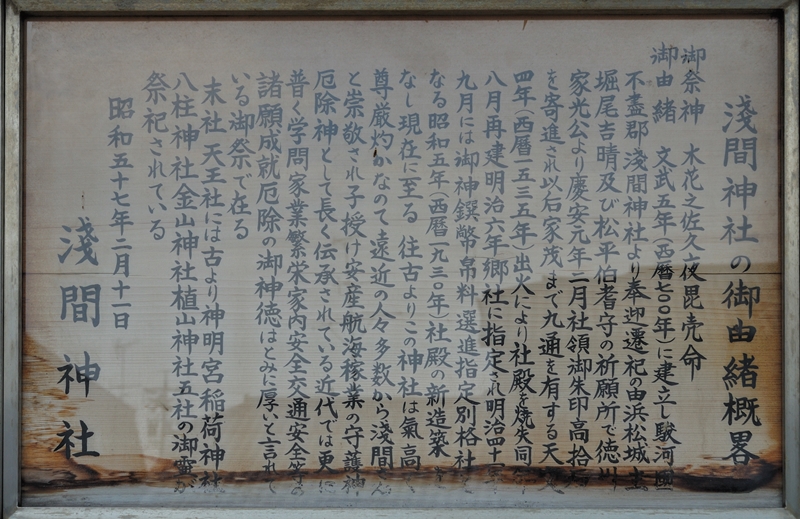 淺間神社の御由緒概畧
御祭神　木花之佐久夜毘売命
御由緒　文武五年（西暦七〇〇年）に建立し駿河國
不盡郡淺間神社より奉迎遷祀の由浜松城主
堀尾吉晴及び松平伯耆守の祈願所で徳川
家光公より慶安元年二月社領御朱印高拾
を寄進され以后家茂まで九通を有する天
四年（西暦一五三五年）出火により社殿を焼失同年
八月再建明治六年郷社に指定され明治四十
九月には御神饌幣帛料選進指定別格社
なる昭和五年（西暦一九三〇年）社殿の新造築
なし現在に至る　往古よりこの神社は氣高
尊厳灼かなので遠近の人々多数から淺間さん
と崇敬され子授け安産航海稼業の守護神
厄除神として長く伝承されている近代では更に
普く学問家業繁栄家内安全交通安全等の
諸願成就厄除の御神徳はとみに厚いと言れて
いる御祭で在る
末社天王社には古より神明宮稲荷神社
八柱神社金山神社植山神社五社の御霊が
祭祀されている
昭和五十七年二月十一日
淺間神社